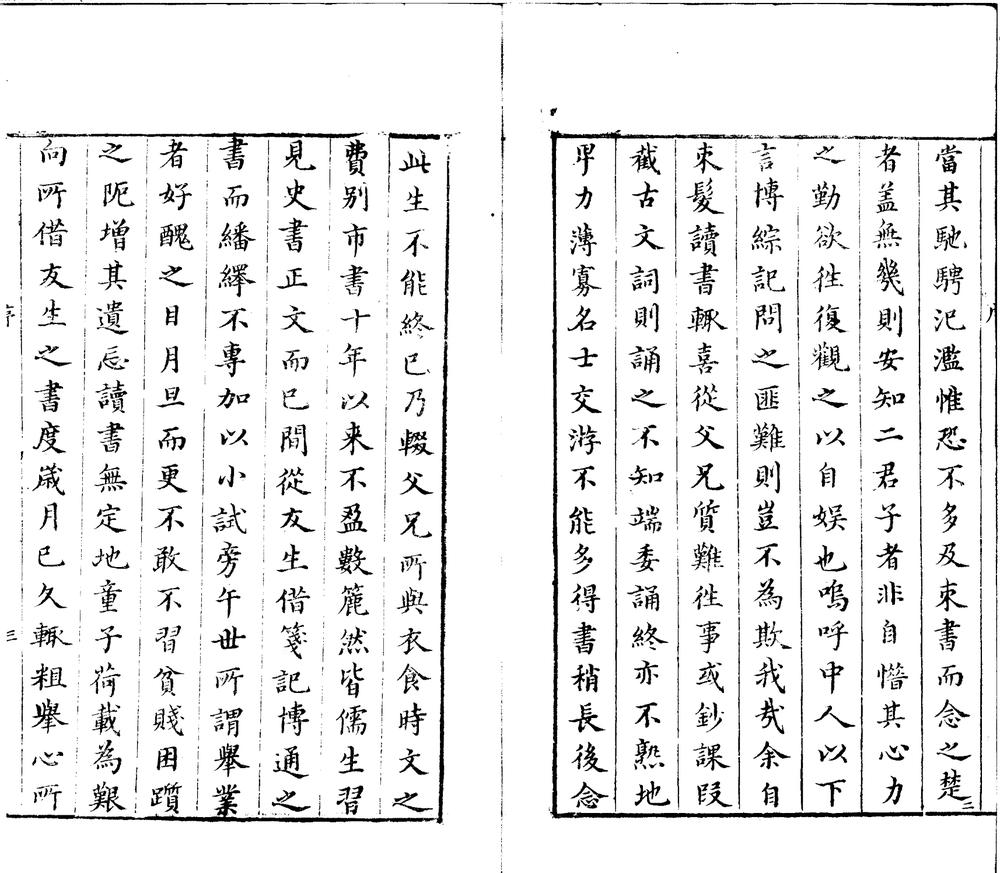 當其馳騁汜濫惟恐不多及束書而念之楚
者盖無幾則安知二君子者非自憯其心力
之勤欲徃復觀之以自娯也嗚呼中人以下
言博綜記問之匪難則豈不為欺我㢤余自
束髮讀書輒喜從父兄質難徃事或鈔課叚
截古文詞則誦之不知端委誦終亦不熟地
𤰞力薄寡名士交游不能多得書稍長後念
此生不能終已乃輟父兄所與衣食時文之
費别市書十年以来不盈數簏然皆儒生習
見史書正文而已間從友生借箋記博通之
書而繙繹不專加以小試旁午丗所謂舉業
者好醜之目月旦而更不敢不習貧賤困躓
之阨增其遺忘讀書無定地童子荷載為艱
向所借友生之書度歲月已久輒粗舉心所
序
三